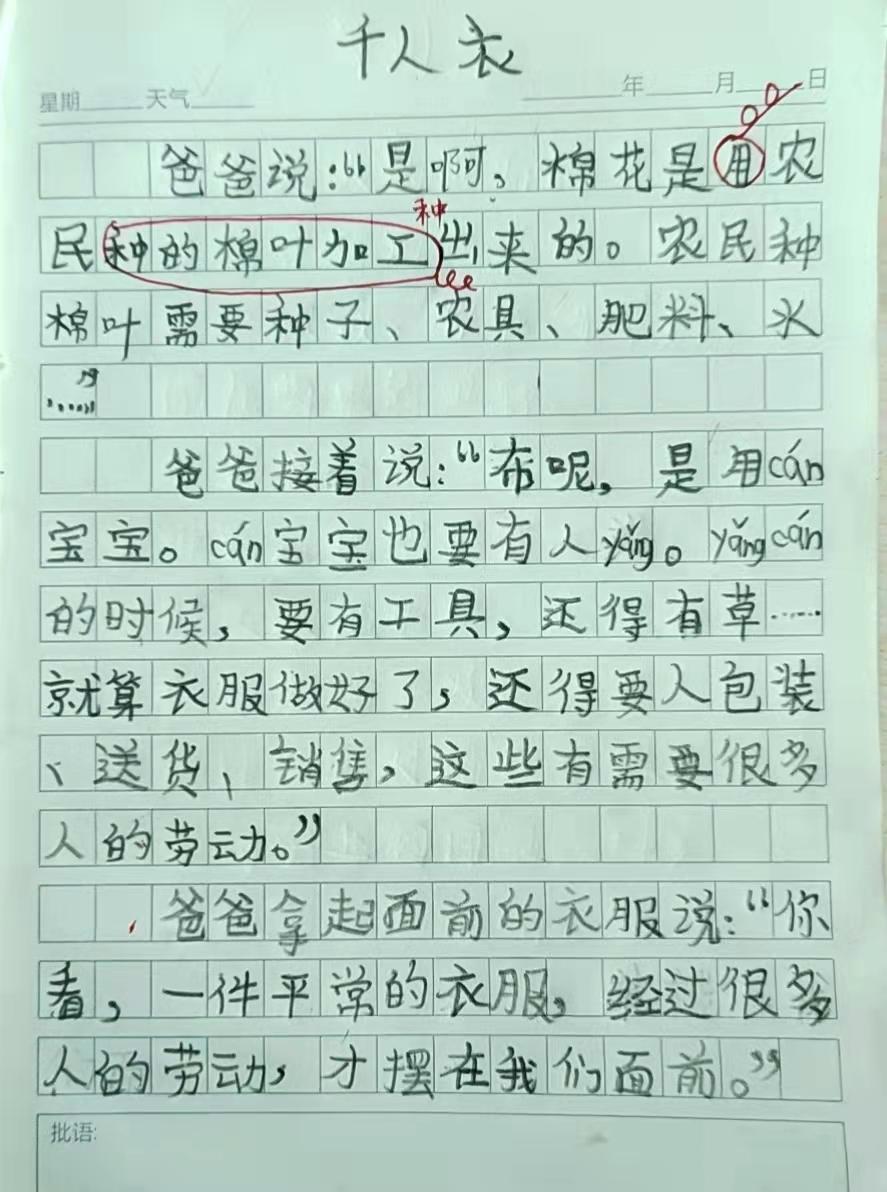 千人衣
星期 天气 年 月 日
爸爸说:“是啊。棉花是用农
种
民种的棉叶加工出来的。农民种
棉叶需要种子、农具、肥料、水
……”
爸爸接着说:“布呢,是用cán
宝宝。cán宝宝也要有人yǎng。yǎngcán
的时候,要有工具,还得有草……
就算衣服做好了,还得要人包装
、送货、销售,这些有需要很多
人的劳动。”
爸爸拿起面前的衣服说:“你
看,一件平常的衣服,经过很多
人的劳动,才摆在我们面前。”
批语: